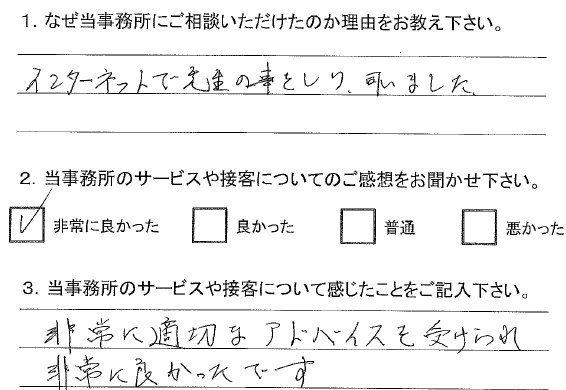 1. なぜ当事務所にご相談いただけたのか理由をお教え下さい。
インターネットで先生の事をしり、伺いました
2. 当事務所のサービスや接客についてのご感想をお聞かせ下さい。
非常に良かった 良かった 普通 悪かった
3. 当事務所のサービスや接客について感じたことをご記入下さい。
非常に適切なアドバイスを受けられ
非常に良かったです